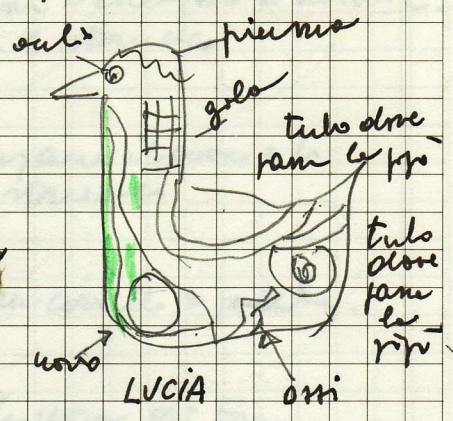 occhio
piuma
gola
tubo dove
passa la pipì
tubo
dove
passa
la
pipì
uovo
LUCIA
ossi